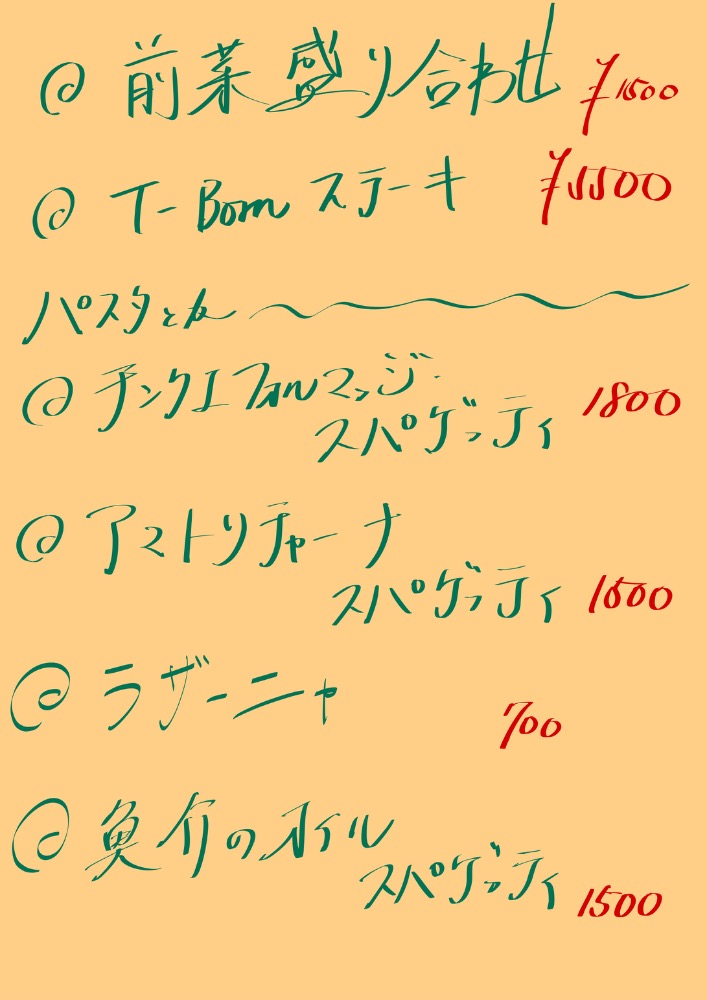 @ 前菜盛り合わせ ¥1500
@ T-Born ステーキ ¥5500
パスタとか
@ チンクエフォルマッジ
スパゲッティ 1800
@ アマトリチャーナ
スパゲッティ 1600
@ ラザーニャ 700
@ 魚介のオイル
スパゲッティ 1500